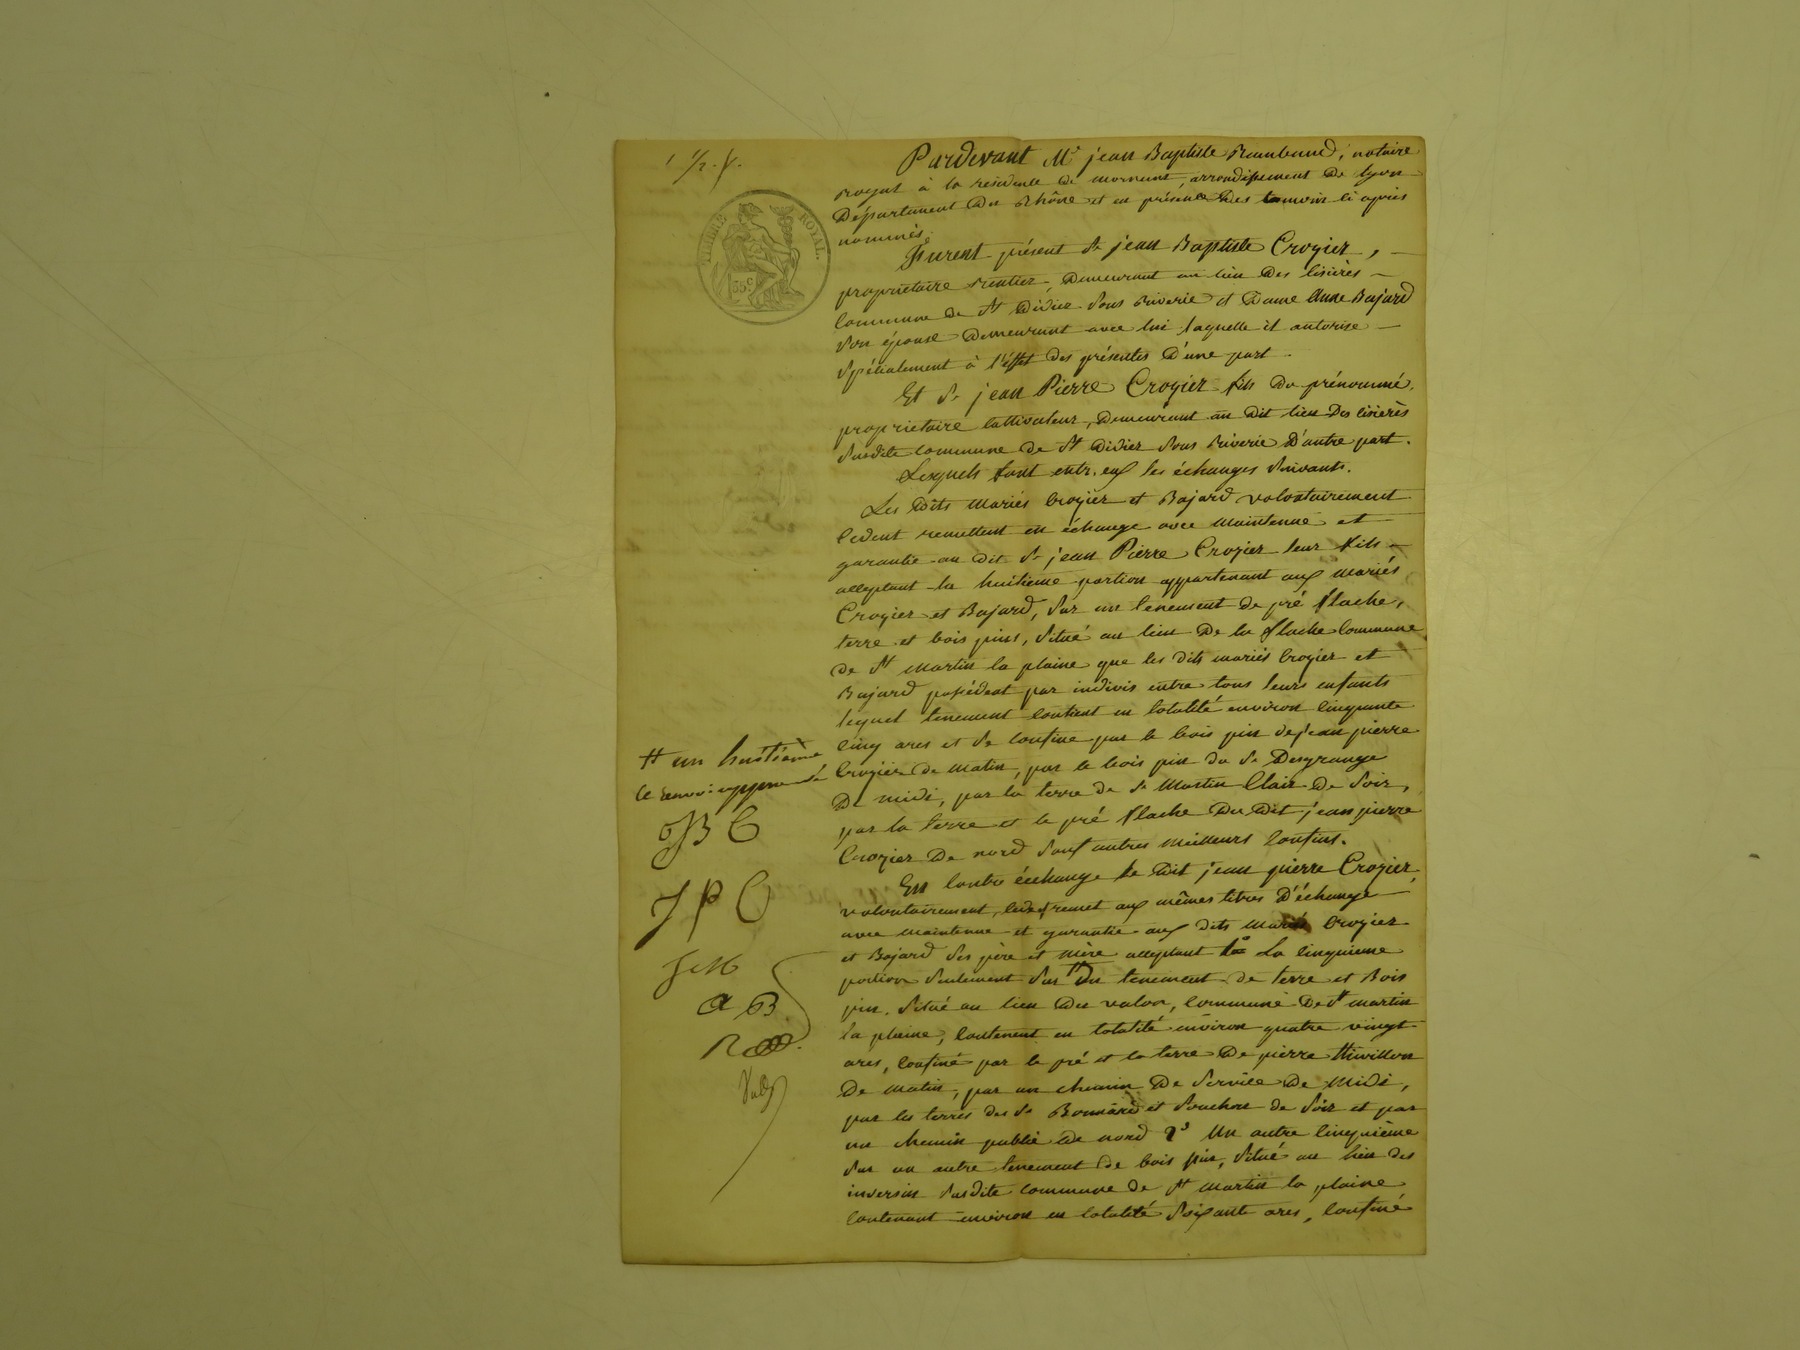 1 1/2 . f.
TIMBRE ROYAL.
35c
Pardevant Me jean Baptiste Raimbaud, notaire
royal à la residence de mornant, arrondissement De lyon
Département Du Rhône et en présence Des temoins ci après
nommés.
Furent présent Sr jean Baptiste Crozier, —
propriétaire rentier, Demeurant au lieu Des lisières —
commune de St Didier Sous Riverie et Dame Anne Bajard
Son épouse Demeurant avec lui laquelle il autorise —
Spécialement à l'effet des présentes D'une part.
Et Sr jean Pierre Crozier fils du prénommé.
propriétaire cultivateur, Demeurant au Dit lieu Des lisières
Susdite commune de St Didier Sous Riverie D'autre part.
Lesquels font entr. eux les échanges Suivants.
Les Dits Mariés Crozier et Bajard volontairement
cedent remettent en échange avec maintenue et
garantie au Dit Sr jean Pierre Crozier leur fils —
acceptant la huitieme portion appartenant aux Mariés
Crozier et Bajard, Sur un tenement De pré flache,
terre et bois pins, Situé au lieu De la flache commune
de St Martin la plaine que les dits mariés Crozier et
Bajard possédent par indivis entre tous leurs enfants
lequel tenement contient en totalité environ cinquante
cinq ares et Se confine par le bois pin de jean pierre
Crozier De Matin, par le bois pin du Sr Desgrange
De midi, par la terre de Sr Martin Clair De Soir,
par la terre et le pré flache Du Dit jean pierre
Crozier De nord Sauf autres meilleurs confins.
En contre échange le Dit jean pierre Crozier,
volontairement, cede et remet aux mêmes titres D'échange
avec maintenue et garantie aux dits mariés Crozier
et Bajard Ses père et mère acceptant 1o La cinquieme
portion Seulement Sur # Du tenement de terre et Bois
pin, Situé au lieu Du valon, commune De St martin
la plaine, contenant en totalité environ quatre vingt
ares, confiné par le pré et la terre De pierre Thivillon
De Matin, par un chemin De Service De Midi,
par les terres des Sr Bonnard et Souchon de Soir et par
un chemin public De nord 2o Un autre cinquième
Sur un autre tenement de bois pin, Situé au lieu des
inversin Susdite commune de St Martin la plaine
contenant environ en totalité Soixante ares, confiné
# un huitième
ce renvoi approuvé
JB C
J P C
J C M
A B
R